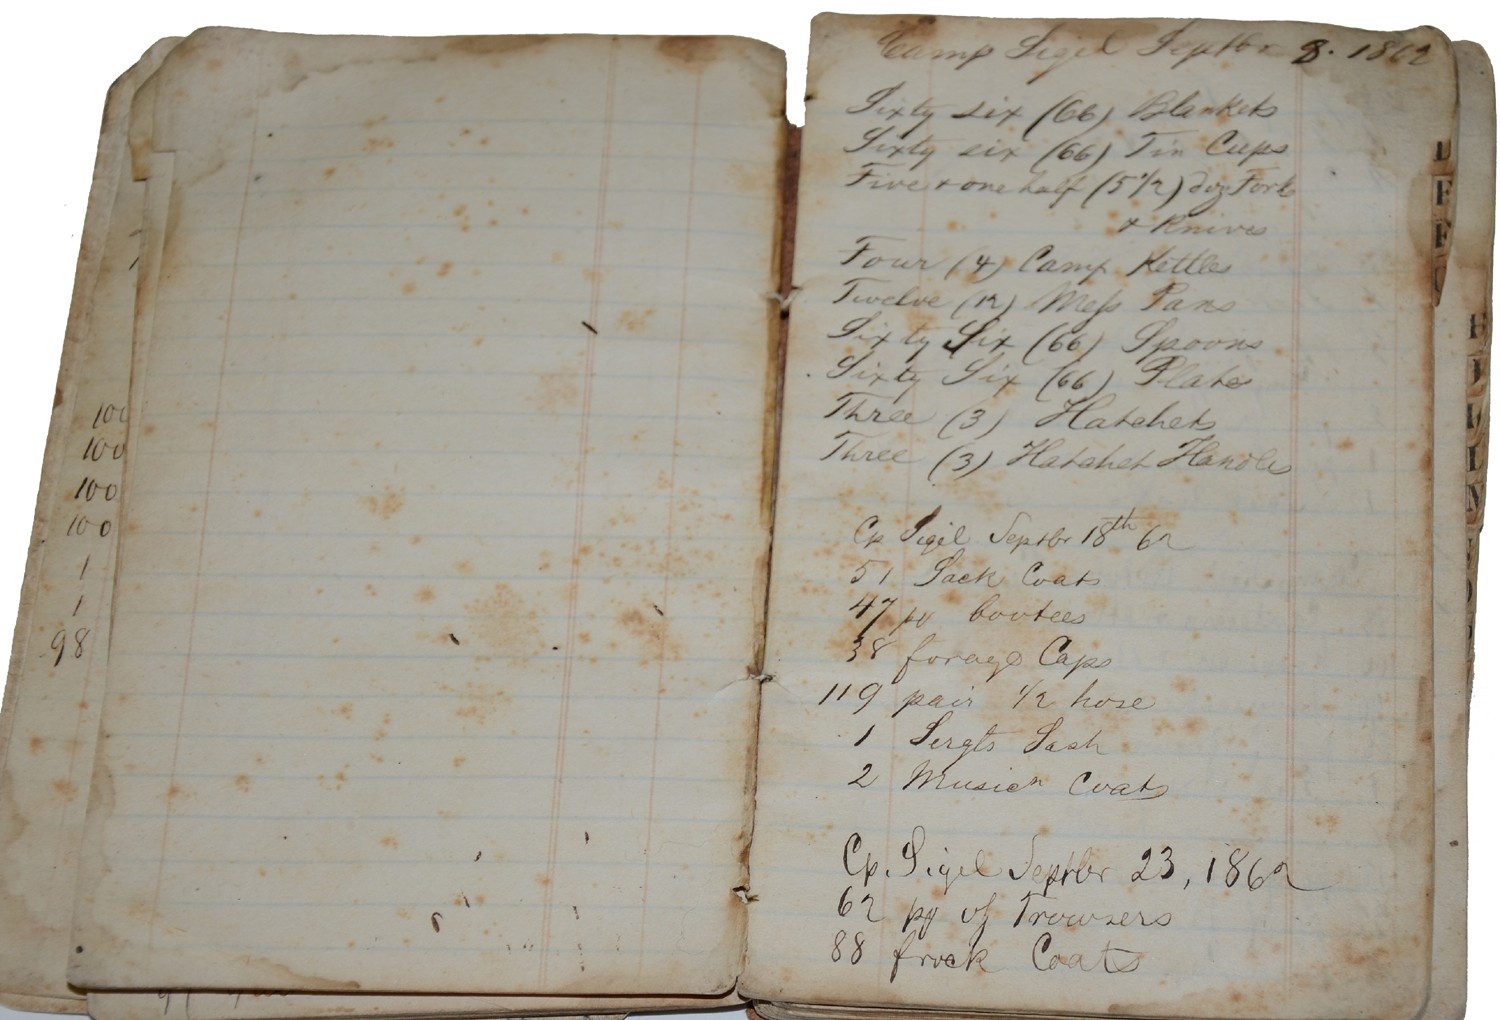 100
100
100
100
1
1
98
Camp Sigel Septbr 8. 1862
Sixty six (66) Blankets
Sixty six (66) Tin Cups
Five & one half (5 1/2) doz Fork
& Knives
Four (4) Camp Kettles
Twelve (12) Mess Pans
Sixty Six (66) Spoons
Sixty Six (66) Plates
Three (3) Hatchets
Three (3) Hatchet Handles
Cp Sigel Septbr 18th 62
51 Sack Coats
47 pr bootees
38 forage Caps
119 pair 1/2 hose
1 Sergts Sash
2 Musicn Coats
Cp. Sigel Septbr 23, 1862
62 pr of Trowsers
88 frock Coats